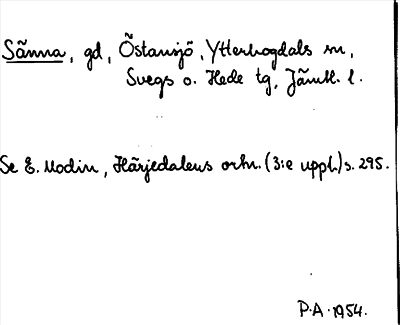 Sänna, gd, Östansjö, Ytterhogdals sn,
Svegs o. Hede tg, Jämtl. l.
Se E. Modin, Härjedalens ortn. (3:e uppl.) s. 295.
P.A. 1954.